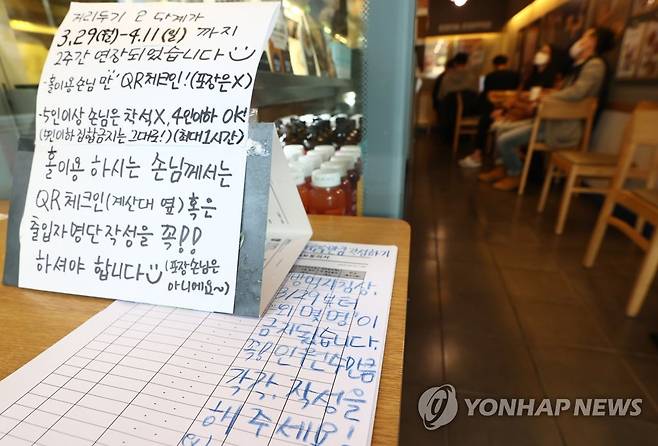 거리두기 2 단계가
3.29(월)-4.11(일) 까지
2주간 연장되었습니다
-홀이용 손님 만 QR체크인! (포장은X)
-5인이상 손님은 착석X, 4인이하 OK
(5인이하 집합금지는 그대로!) (최대1시간)
홀이용 하시는 손님께서는
QR체크인(계산대 옆) 혹은
출입자명단작성을 꼭!!
하셔야 합니다 (포장손님은
아니에요~)
작성하기
방역지침상,
3/29부터
"외 몇명"이
금지됩습니다.
꼭! 인원수만큼
각각, 작성을
해주세요!
YONHAP NEWS